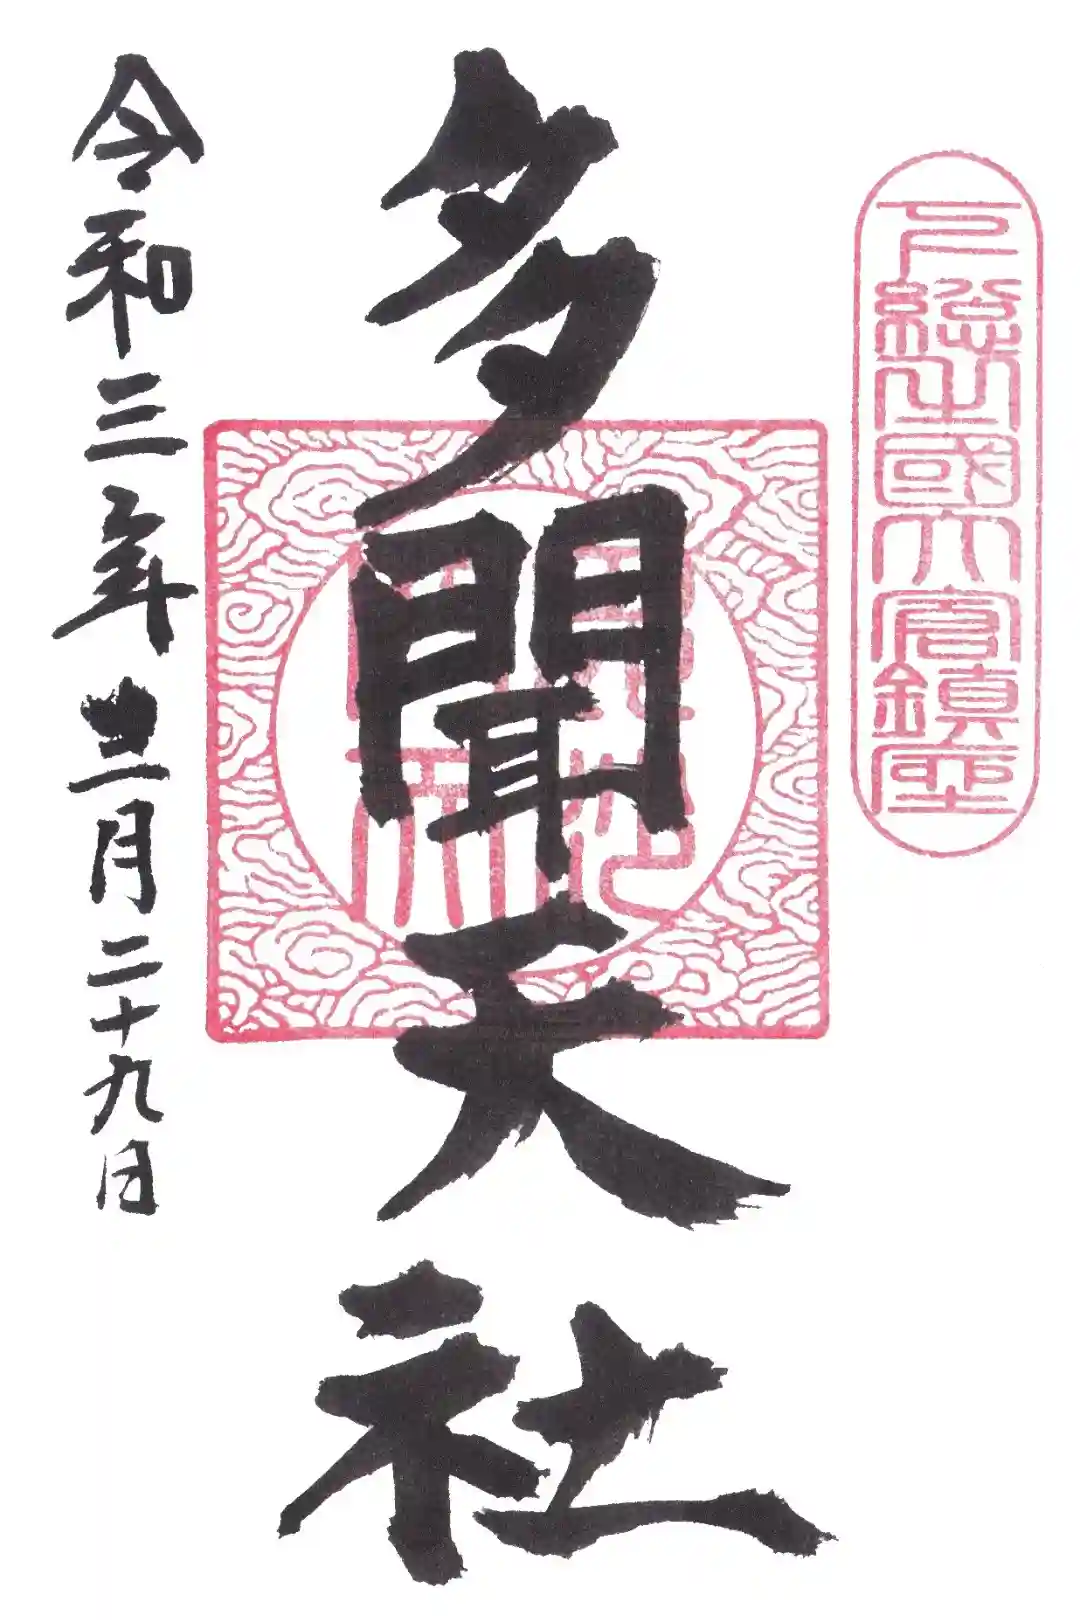 下総之國大倉鎮座
多聞天社
令和三年十二月二十九日